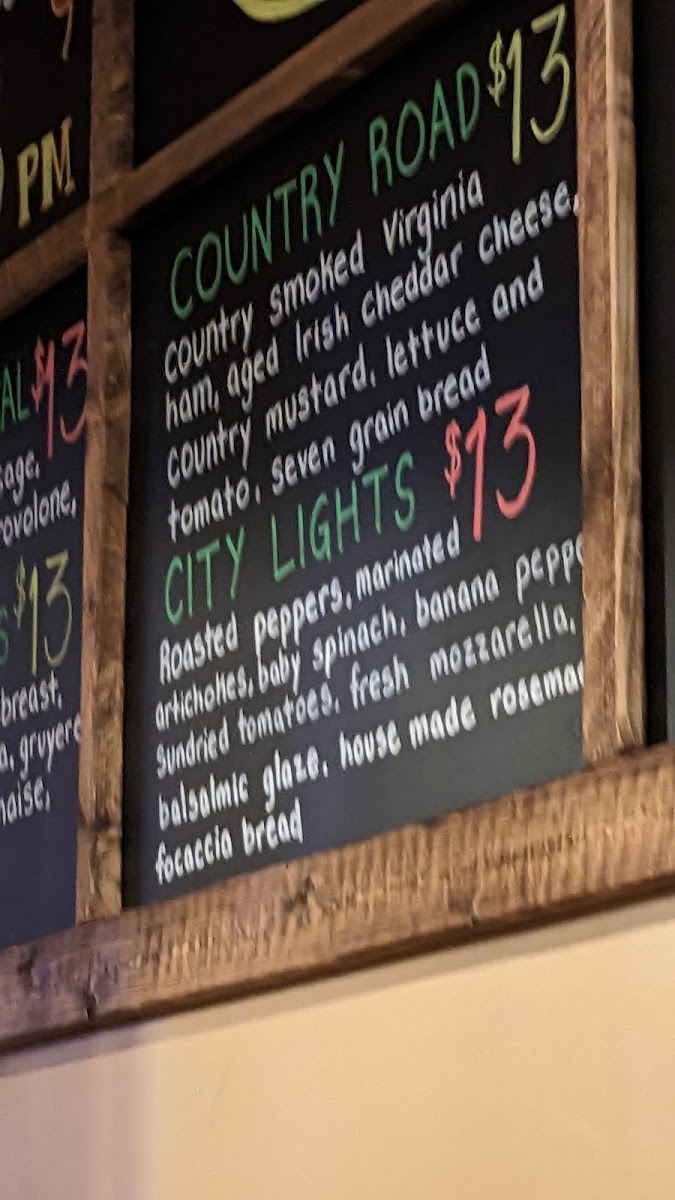 PM
COUNTRY ROAD $13
Country smoked Virginia
ham, aged Irish cheddar cheese,
country mustard, lettuce and
tomato, seven grain bread
CITY LIGHTS $13
Roasted peppers, marinated
artichokes, baby spinach, banana peppe
Sundried tomatoes, fresh mozzarella,
balsalmic glaze, house made rosema
focaccia bread
AL $13
sage,
rovolone,
S $13
breast,
a, gruyere
naise,